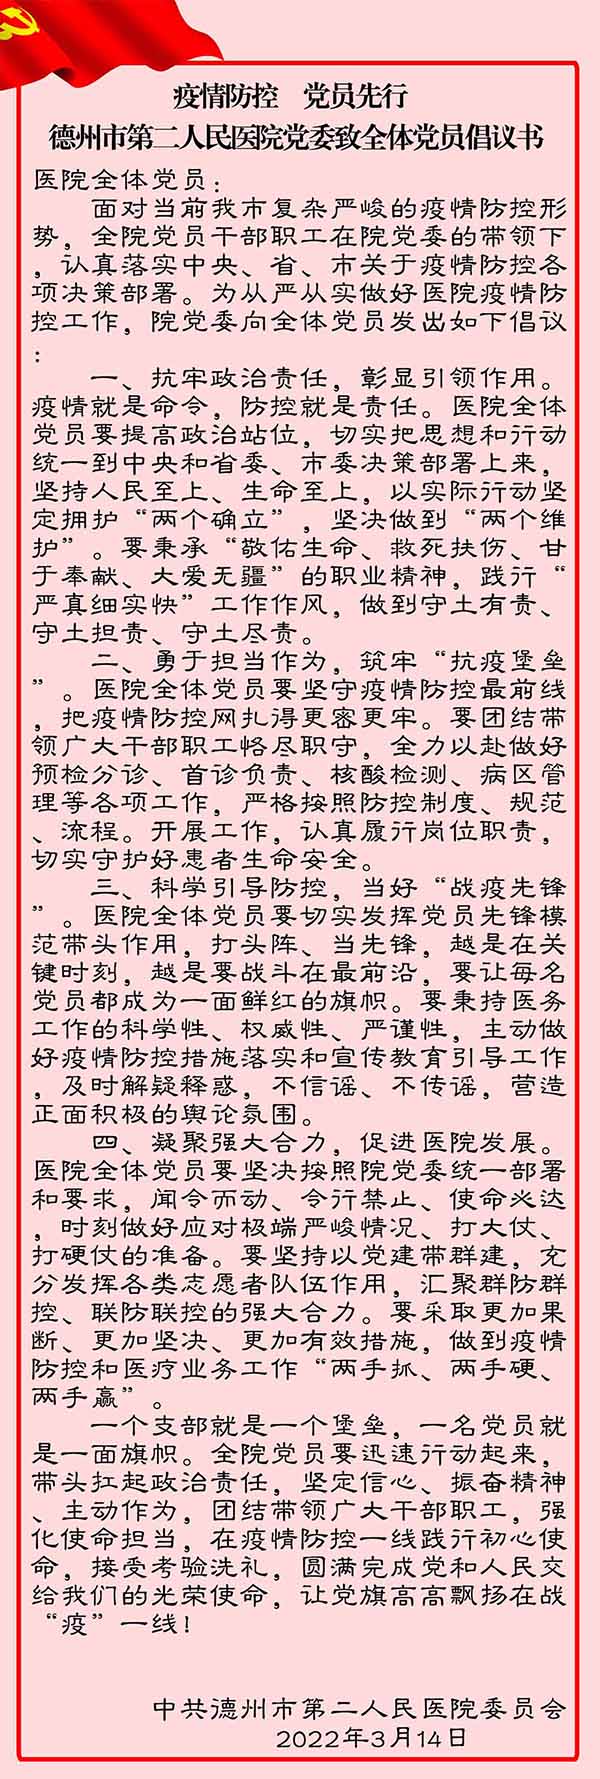 疫情防控　党员先行
德州市第二人民医院党委致全体党员倡议书
医院全体党员：
面对当前我市复杂严峻的疫情防控形
势，全院党员干部职工在院党委的带领下
，认真落实中央、省、市关于疫情防控各
项决策部署。为从严从实做好医院疫情防
控工作，院党委向全体党员发出如下倡议
：
一、抗牢政治责任，彰显引领作用。
疫情就是命令，防控就是责任。医院全体
党员要提高政治站位，切实把思想和行动
统一到中央和省委、市委决策部署上来，
坚持人民至上、生命至上，以实际行动坚
定拥护“两个确立”，坚决做到“两个维
护”。要秉承“敬佑生命、救死扶伤、甘
于奉献、大爱无疆”的职业精神，践行“
严真细实快”工作作风，做到守土有责、
守土担责、守土尽责。
二、勇于担当作为，筑牢“抗疫堡垒
”。医院全体党员要坚守疫情防控最前线
，把疫情防控网扎得更密更牢。要团结带
领广大干部职工恪尽职守，全力以赴做好
预检分诊、首诊负责、核酸检测、病区管
理等各项工作，严格按照防控制度、规范
、流程。开展工作，认真履行岗位职责，
切实守护好患者生命安全。
三、科学引导防控，当好“战疫先锋
”。医院全体党员要切实发挥党员先锋模
范带头作用，打头阵、当先锋，越是在关
键时刻，越是要战斗在最前沿，要让每名
党员都成为一面鲜红的旗帜。要秉持医务
工作的科学性、权威性、严谨性，主动做
好疫情防控措施落实和宣传教育引导工作
，及时解疑释惑，不信谣、不传谣，营造
正面积极的舆论氛围。
四、凝聚强大合力，促进医院发展。
医院全体党员要坚决按照院党委统一部署
和要求，闻令而动、令行禁止、使命必达
，时刻做好应对极端严峻情况、打大仗、
打硬仗的准备。要坚持以党建带群建，充
分发挥各类志愿者队伍作用，汇聚群防群
控、联防联控的强大合力。要采取更加果
断、更加坚决、更加有效措施，做到疫情
防控和医疗业务工作“两手抓、两手硬、
两手赢”。
一个支部就是一个堡垒，一名党员就
是一面旗帜。全院党员要迅速行动起来，
带头扛起政治责任，坚定信心、振奋精神
、主动作为，团结带领广大干部职工，强
化使命担当，在疫情防控一线践行初心使
命，接受考验洗礼，圆满完成党和人民交
给我们的光荣使命，让党旗高高飘扬在战
“疫”一线！
中共德州市第二人民医院委员会
2022年3月14日